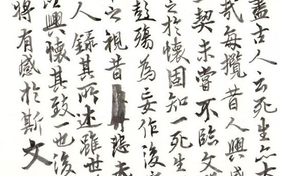 盡古人云死生亦大
哉每攬昔人興感
一契未嘗不臨文
之於懷固知一死生
彭殤為妄作後
之視昔悲夫
人錄其所述雖世
以興懷其致一也後
將有感於斯文